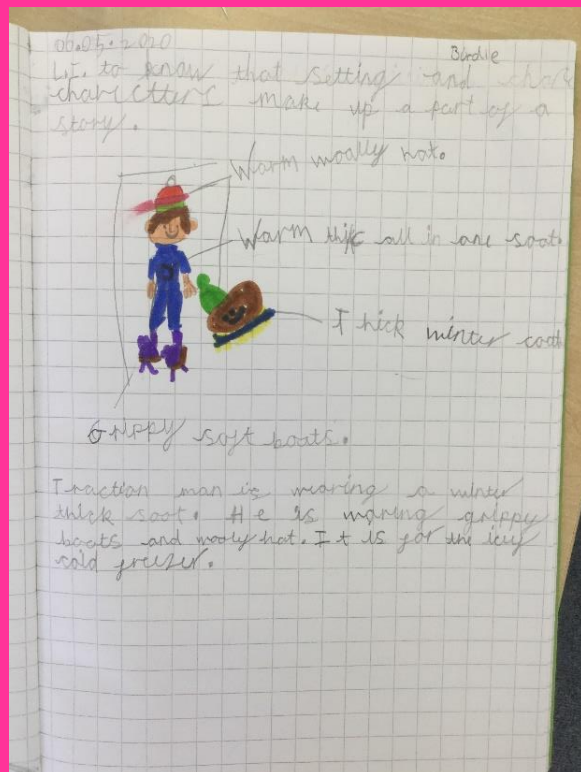 06.05.2020
Birdie
L.I. to know that setting and char
charectters make up a part of a
story.
Warm woolly hat.
Warm thick all in one soot.
Thick winter coat
Grippy soft boots.
Traction man is wearing a winter
thick soot. He is waring grippy
boots and wooly hat. It is for the icy
cold freezer.